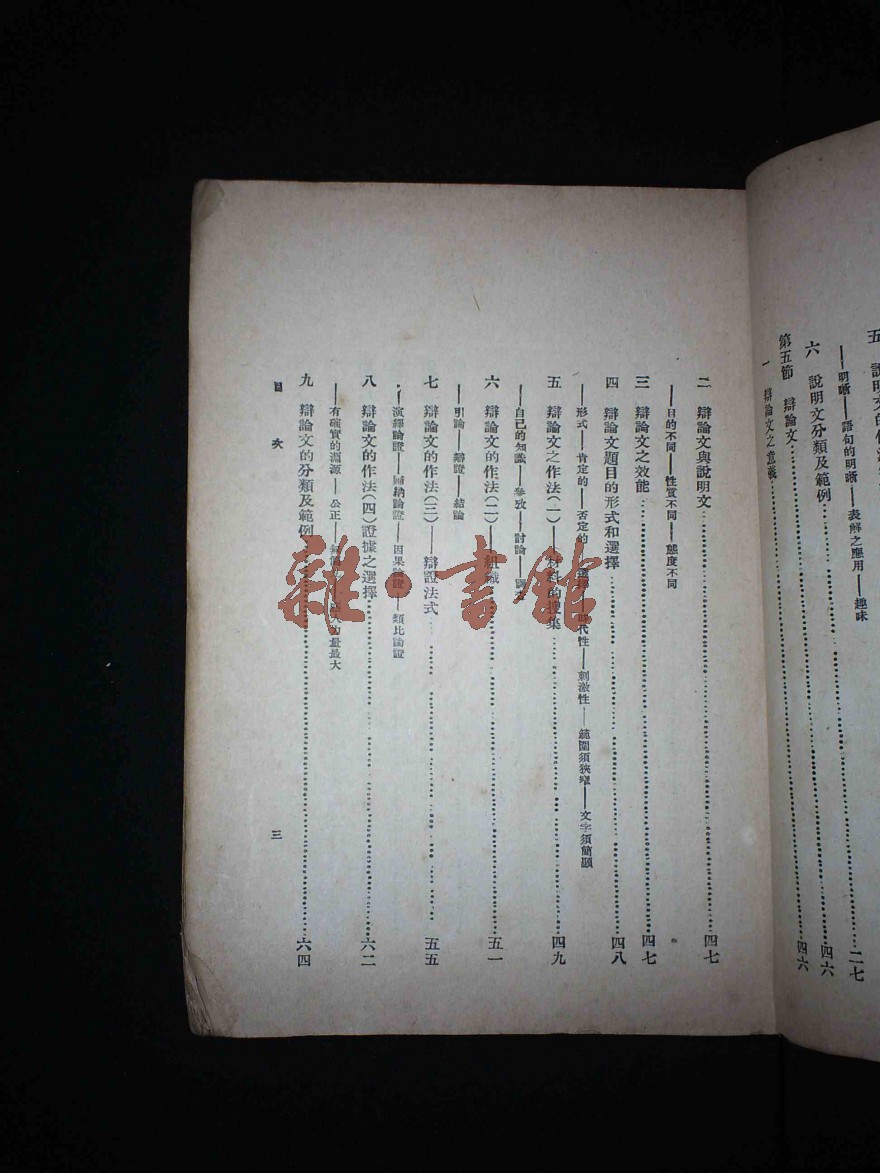 五　說明文的作法
——明晰——語句的明晰——表解之應用——趣味 二七
六　說明文分類及範例 四六
第五節　辯論文
一　辯論文之意義 四六
二　辯論文與說明文 四七
——目的不同——性質不同——態度不同
三　辯論文之效能 四七
四　辯論文題目的形式和選擇 四八
——形式——肯定的——否定的——選擇——時代性——刺激性——範圍須狹窄——文字須簡顯
五　辯論文之作法(一)——材料的搜集 四九
——自己的知識——參攷——討論——調查
六　辯論文的作法(二)——組織 五一
——引論——辯證——結論
七　辯論文的作法(三)——辯證法式 五五
——演繹論證——歸納論證——因果論證——類比論證
八　辯論文的作法(四)證據之選擇 六二
——有確實的淵源——公正——力量最大
九　辯論文的分類及範例 六四
目　次
三
雜·書館